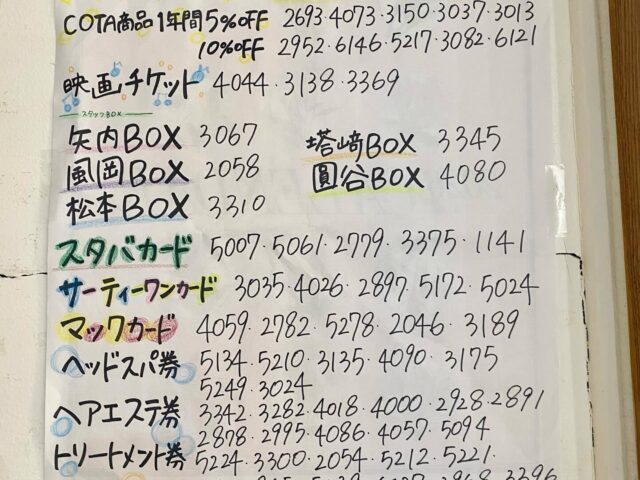 COTA商品1年間5%OFF 2693・4073・3150・3037・3013
10%OFF 2952・6146・5217・3082・6121
映画チケット 4044・3138・3369
スタッフBOX
矢内BOX 3067 塔﨑BOX 3345
風岡BOX 2058 圓谷BOX 4080
松本BOX 3310
スタバカード 5007・5061・2779・3375・1141
サーティーワンカード 3035・4026・2897・5172・5024
マックカード 4059・2782・5278・2046・3189
ヘッドスパ券 5134・5210・3135・4090・3175
5249・3024
ヘアエステ券 3342・3282・4018・4000・2928・2891
2878・2995・4086・4057・5094
トリートメント券 5224・3300・2054・5212・5221・